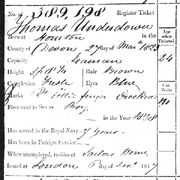 No. 389,198 Register Ticket
Thomas Underdown
Born at Honiton
County of Devon 27 day of 1823
Capacity Seaman
Height 5 ft 8 3/4 Hair Brown
Complexion Fresh Eyes Blue
Marks Little finger Crooked
First went to Sea as Boy
in the Year 1838
Has served in the Royal Navy 7 Years
Has been in Foreign Service
When unemployed, resides at Sailors Home
Issued at London day of 1847
24